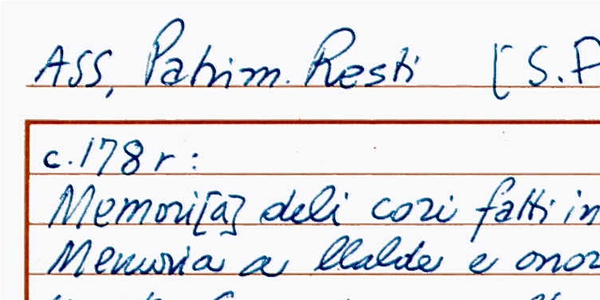 ASS, Patrim. Resti [S.P
c.178r:
Memori[a] deli cori fatti in
Memoria a llalde e onor